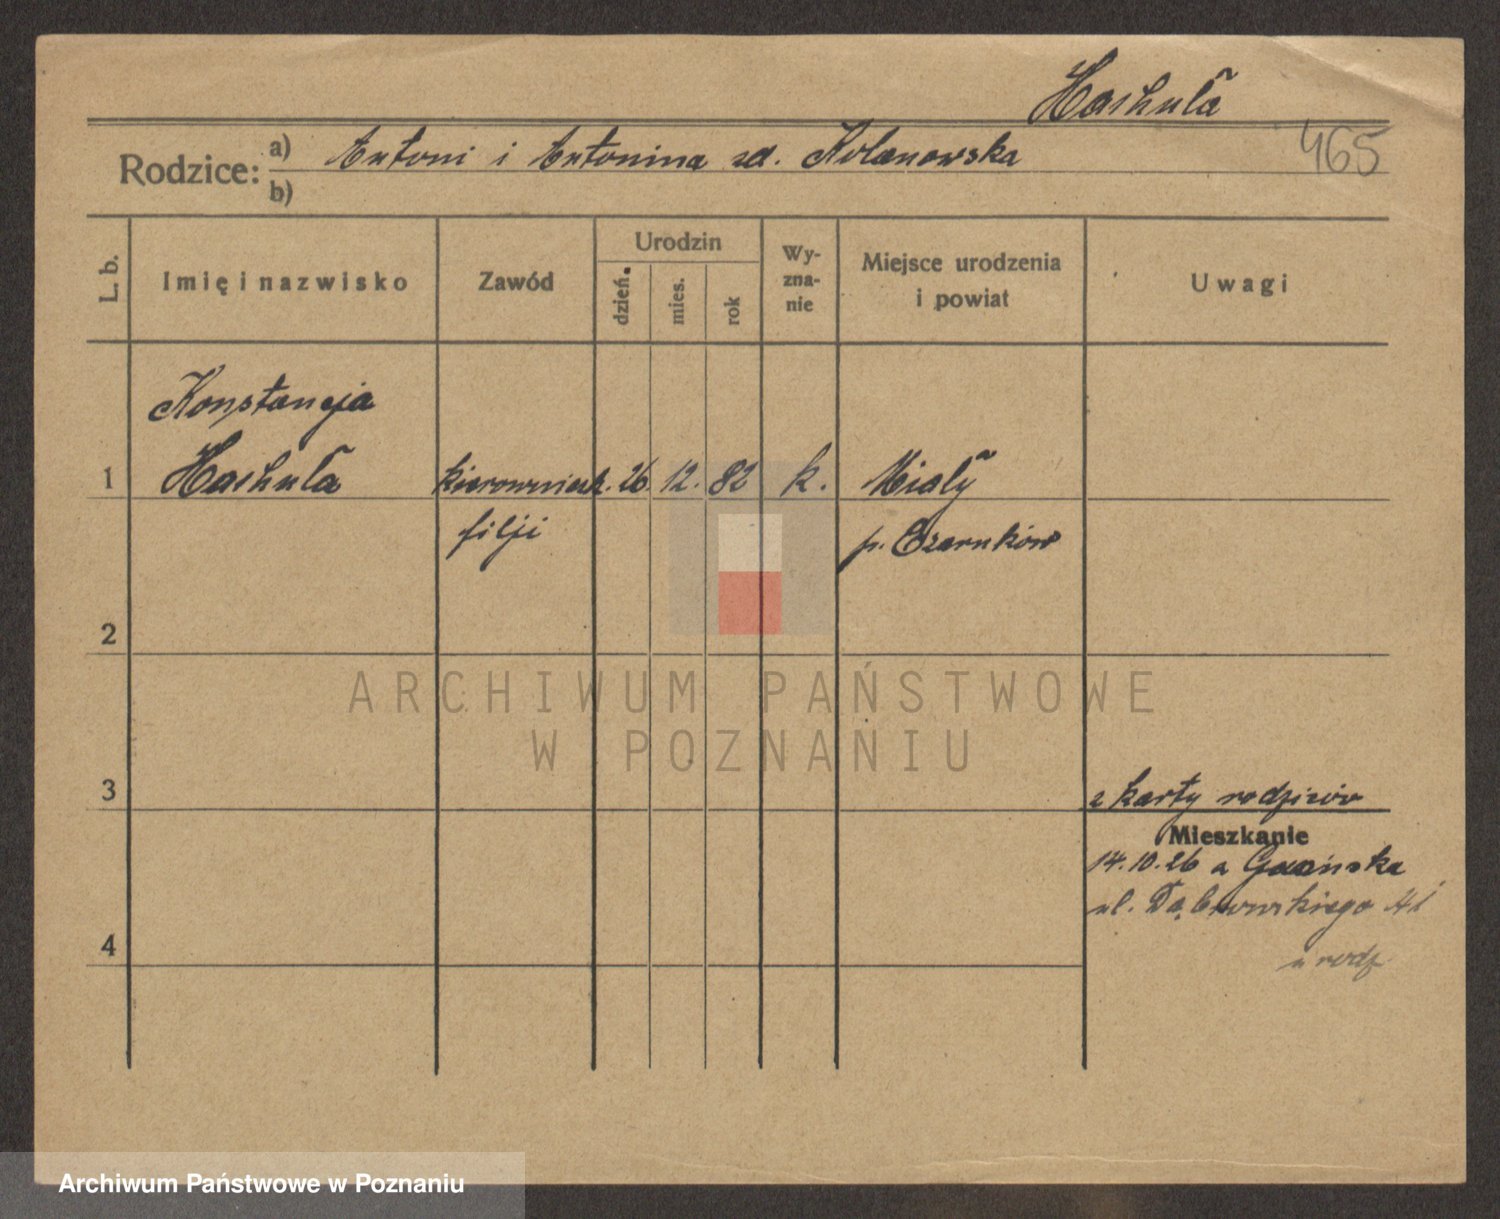 Hachuła
465
Rodzice: a) Antoni i Antonina zd. Kolanowska
b)
L. b. Imię i nazwisko Zawód Urodzin dzień. mies. rok Wy-zna-nie Miejsce urodzenia i powiat Uwagi
Konstancja
1 Hachuła kierowniczk. 26. 12. 82 k. Miały
filji p. Czarnków
2
ARCHIWUM PAŃSTWOWE
W POZNANIU
3 z karty rodziców
Mieszkanie
14.10.26 a
ul. Dąbrowskiego
4
u rodz.
Archiwum Państwowe w Poznaniu